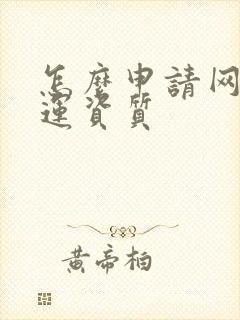 怎麽申請网
運資質
黄帝柏